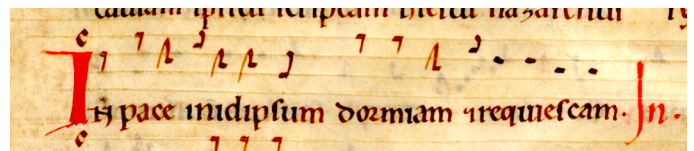 In pace inidipsum dormiam ⁊requiescam. In.